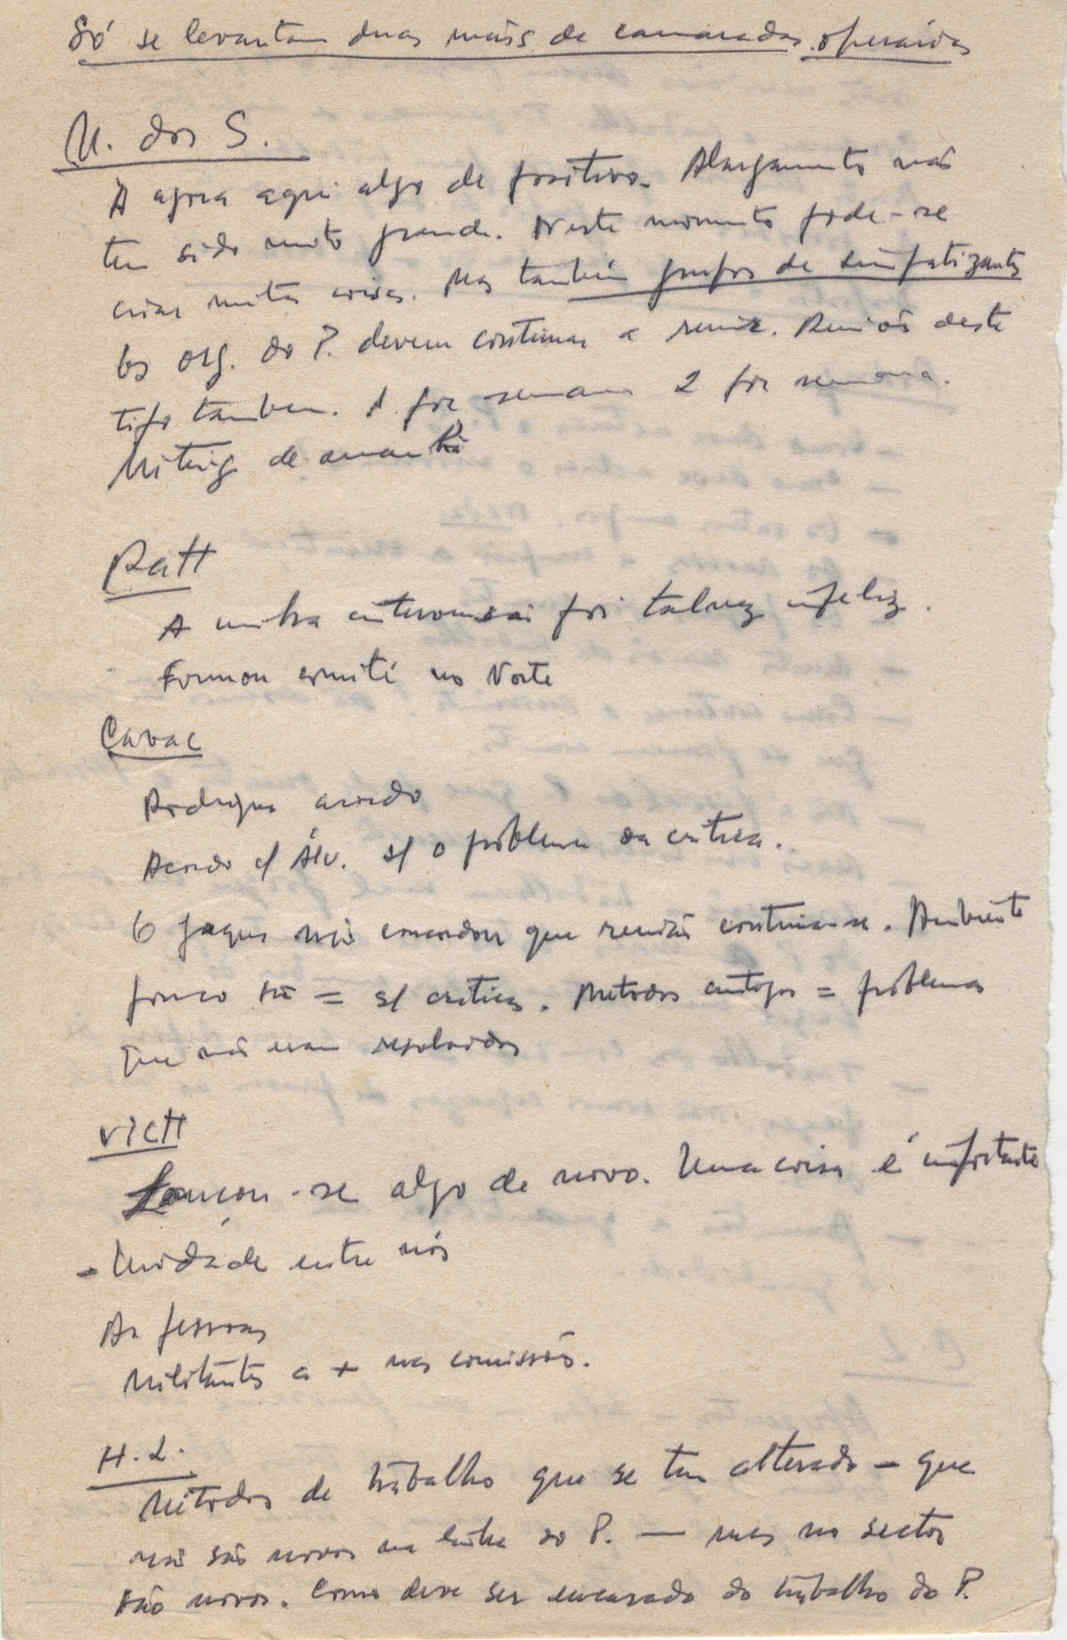 Só se levantam duas mãos de camaradas operários
M. dos S.
A agora aqui algo de positivo. Alargamento não
tem sido muito grande. Neste momento pode-se
criar muitas coisas. Mas também grupos de simpatizantes
Os org. do P. devem continuar a reunir. Reuniões deste
tipo tambem. 1 por semana 2 por semana.
Miting de amanhã
Ratt
A minha intervenção foi talvez infeliz.
Formou comité no Norte
Cavac
Rodrigues acordo
Acordo c/ Álv. s/ o problema da critica.
O Jaques não concordou que reunião continuasse. Ambiente
pouco são = s/ criticas. Metodos antigos = problemas
que não eram resolvidos
Vict
Lançou-se algo de novo. Uma coisa é importante
- Unidade entre nós
As pessoas
Militantes a + nas comissões.
H. L.
Métodos de trabalho que se tem alterado - que
não são novos na linha do P. — mas no sector
são novos. Como deve ser encarado do trabalho do P.